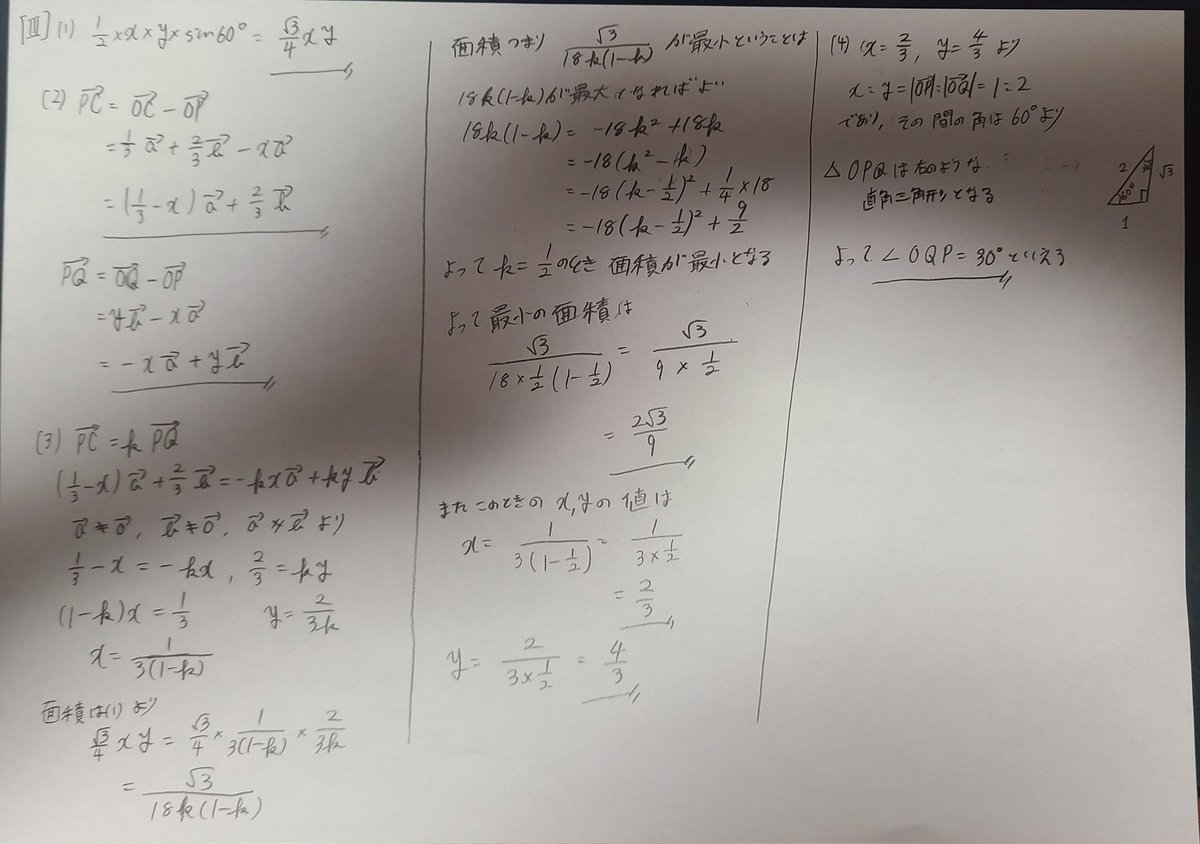 [III] (1) 1/2 × x × y × sin60° = √3/4 xy
(2) →PC = →OC − →OP
= 1/3 →a + 2/3 →b − x→a
= (1/3 − x)→a + 2/3 →b
→PQ = →OQ − →OP
= y→b − x→a
= −x→a + y→b
(3) →PC = k →PQ
(1/3 − x)→a + 2/3 →b = −kx→a + ky→b
→a ≠ →0, →b ≠ →0, →a ∦ →b より
1/3 − x = −kx , 2/3 = ky
(1−k)x = 1/3 y = 2/3k
x = 1/3(1−k)
面積は(1)より
√3/4 xy = √3/4 × 1/3(1−k) × 2/3k
= √3/18k(1−k)
面積つまり √3/18k(1−k) が最小ということは
18k(1−k)が最大となればよい
18k(1−k) = −18k² + 18k
= −18(k² − k)
= −18(k − 1/2)² + 1/4 × 18
= −18(k − 1/2)² + 9/2
よって k = 1/2 のとき 面積が最小となる
よって 最小の面積は
√3/18×1/2(1−1/2) = √3/9 × 1/2
= 2√3/9
またこのときの x,yの値は
x = 1/3(1−1/2) = 1/3×1/2
= 2/3
y = 2/3×1/2 = 4/3
(4) x = 2/3, y = 4/3 より
x : y = |→OP| : |→OQ| = 1 : 2
であり, その間の角は60°より
△OPQは右のような
直角三角形となる
2 30° √3
60°
1
よって ∠OQP = 30° といえる